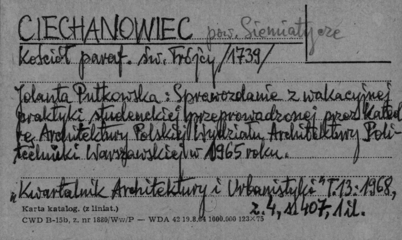 CIECHANOWIEC pow. Siemiatycze
Kościół paraf. św. Trójcy /1739/
Jolanta Putkowska: Sprawozdanie z wakacyjnej
praktyki studenckiej przeprowadzonej przez kated
rę Architektury Polskiej Wydziału Architektury Poli-
techniki Warszawskiej w 1965 roku.
"Kwartalnik Architektury i Urbanistyki" T.13: 1968,
z.4, s.407, 1 il.
Karta katalog. (z liniat.)
CWD B-15b, z. nr 1880/Ww/P — WDA 42 19.8.64 1000.000 125×75